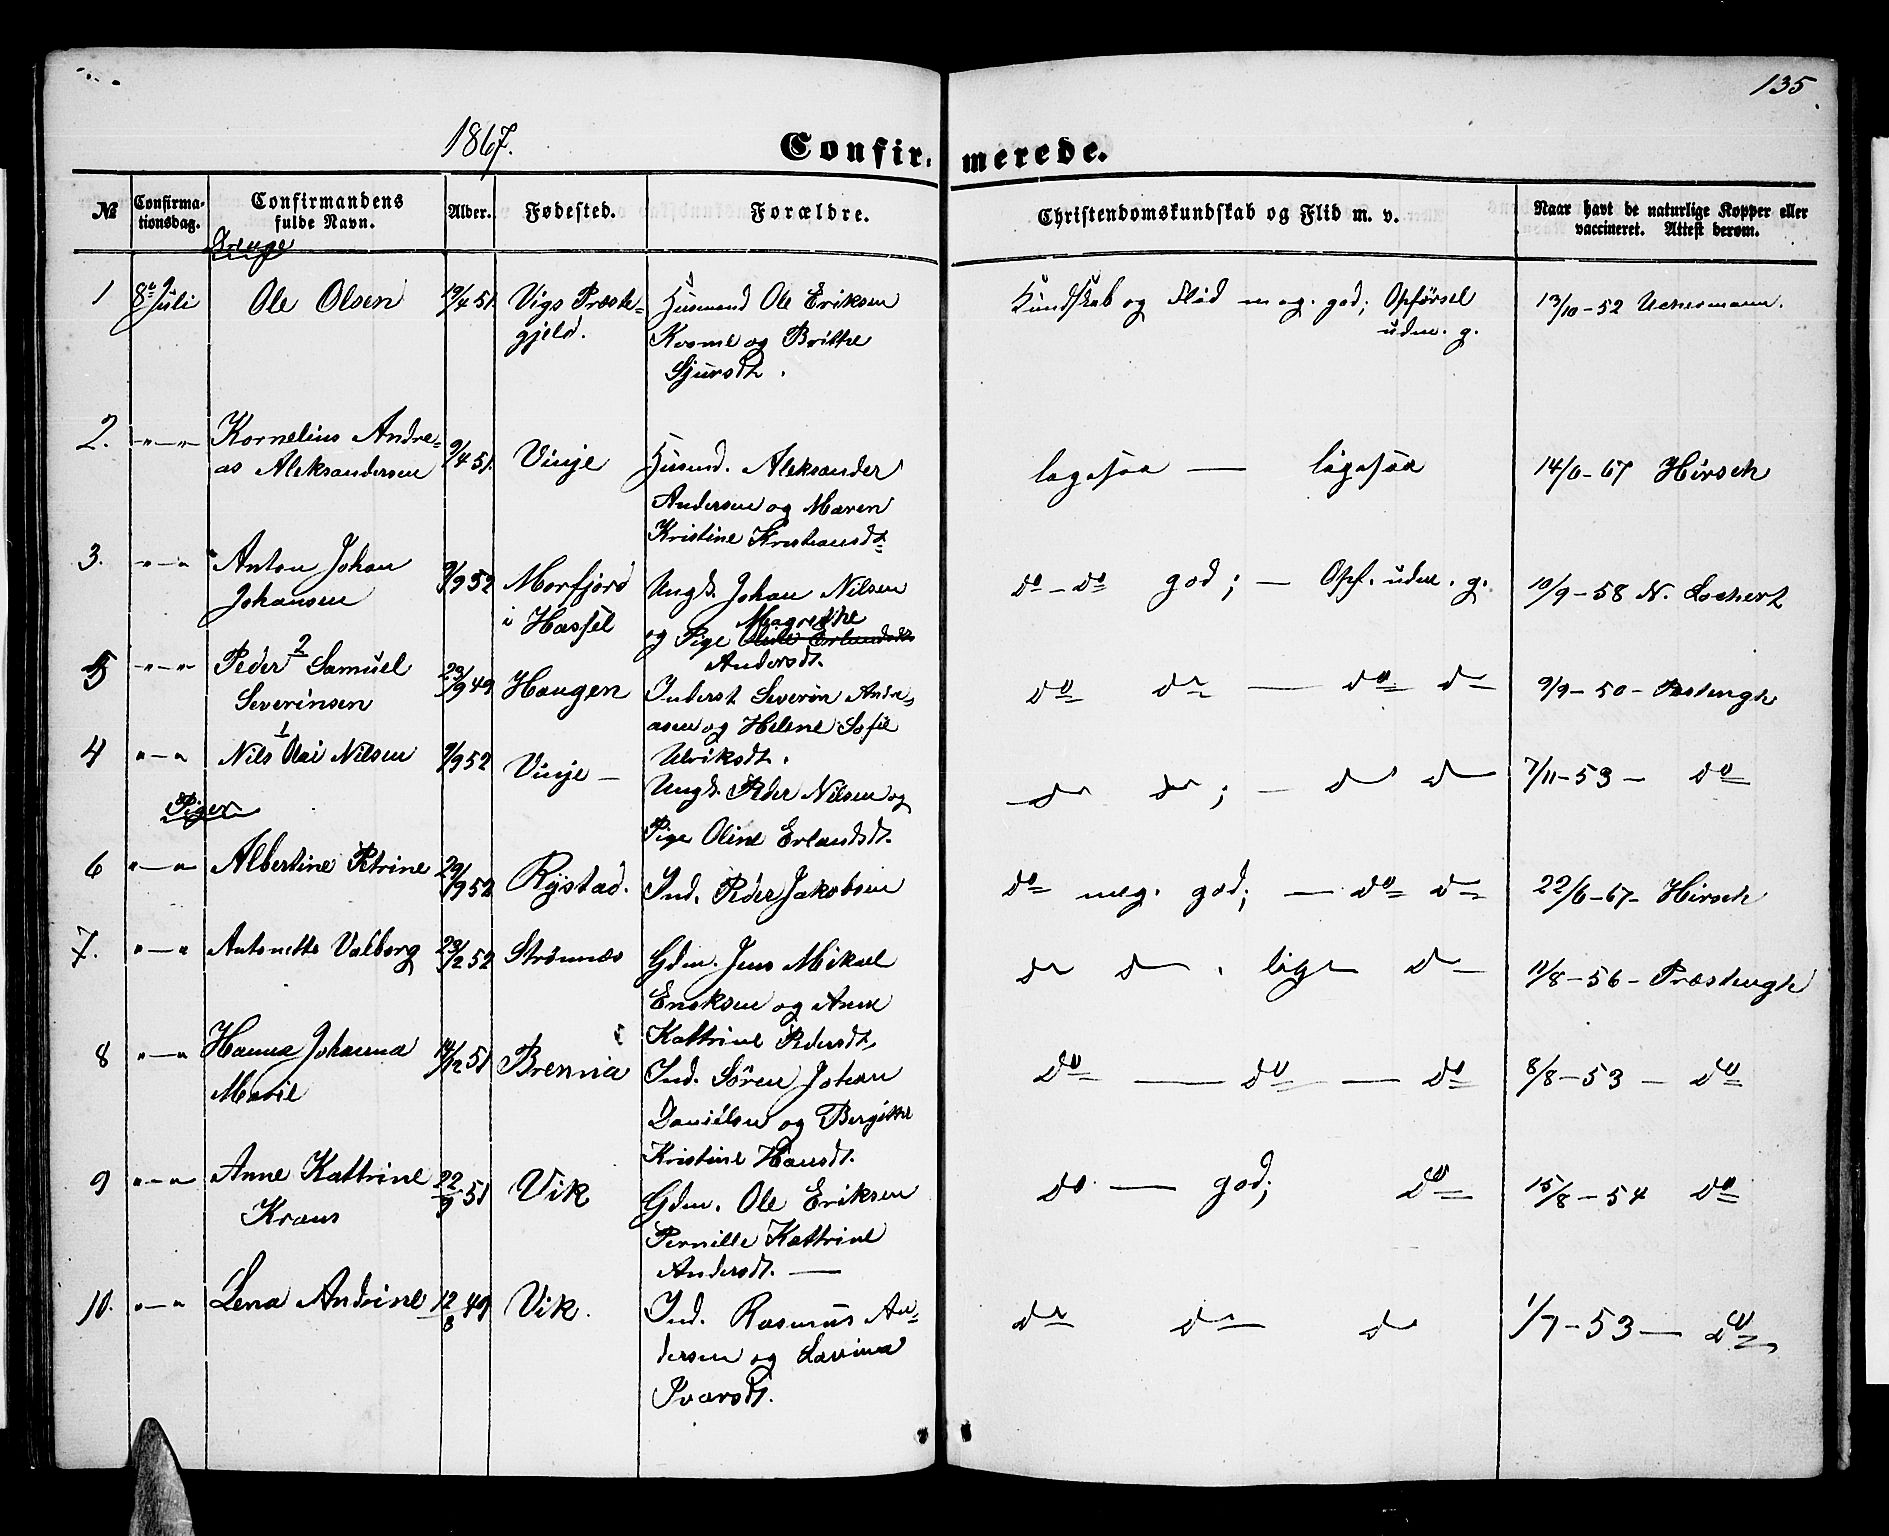 135.
1867.
Confir- merede.
№ Confirma-tionsdag. Confirmandens fulde Navn. Alder. Fødested. Forældre. Christendomskundskab og Flid m. v. Naar havt de naturlige Kopper eller vaccineret. Attest derom.
Drenge
1 8de Juli Ole Olsen 19/4 51. Vigs Præste- Husmand Ole Eriksen Kundskab og Flid meg. god; Opførsel 13/10-52 Uchermann.
gjeld. og Brithe udm. g.
Sjursdt.
2. -"-"- Kornelius Andre-
as Aleksandersen 9/4 51. Vinje Husmd. Aleksander ligesaa — ligesaa 14/6-67 Hirsch
Andersen og Maren
Kristine Kristiansdt
3. -"-"- Anton Johan
Johansen 9/9 52 Morfjord Ungk. Johan Nilsen do - do god; - Opf. udm. g. 19/9-58 N. Lochert
i Hassel Magrethe
og Pige Oline Erlandsdt
Andersdt.
5 -"-"- Peder 2 Samuel
Severinsen 29/9 49 Haugen Inderst Severin Andre- do do — do do 9/9-50 - Præstengh
asen og Helene Sofie
Ulriksdt.
4 "-" Nils 1 Olai Nilsen 9/9 52 Vinje - do do ; - do do 7/11-53 - do
Ungk. Peder Nilsen og
Pige Oline Erlandsdt.
Piger
6 "-" Albertine Petrine 29/9 52 Rystad. Ind. Peder Jakobsen do meg. god; - do do 22/6-67- Hirsch
7. "-" Antonette Valborg 23/2 52 Strømnes Gdm. Jens Mikael do do . lige do 11/8-56 - Præstengh
Eriksen og Anne
Kattrine Pedersdt,
8 "-" Hanna Johanna
Marie 14/12 51 Brenna Ind. Søren Johan do — do — do 8/8-53 - do
Danielsen og Bergithe
Kristine Hansdt.
9 "-" Anne Kattrine
Kraus 22/9 51 Vik Gdm. Ole Eriksen do — god; do 15/8-54 do
Pernille Kattrine
Andersdt. —
10. "-" Lena Andrine 12/8 49 Vik. Ind. Rasmus An- do do do 1/7-53 — do
dersen og Lavina
Ivarsdt.